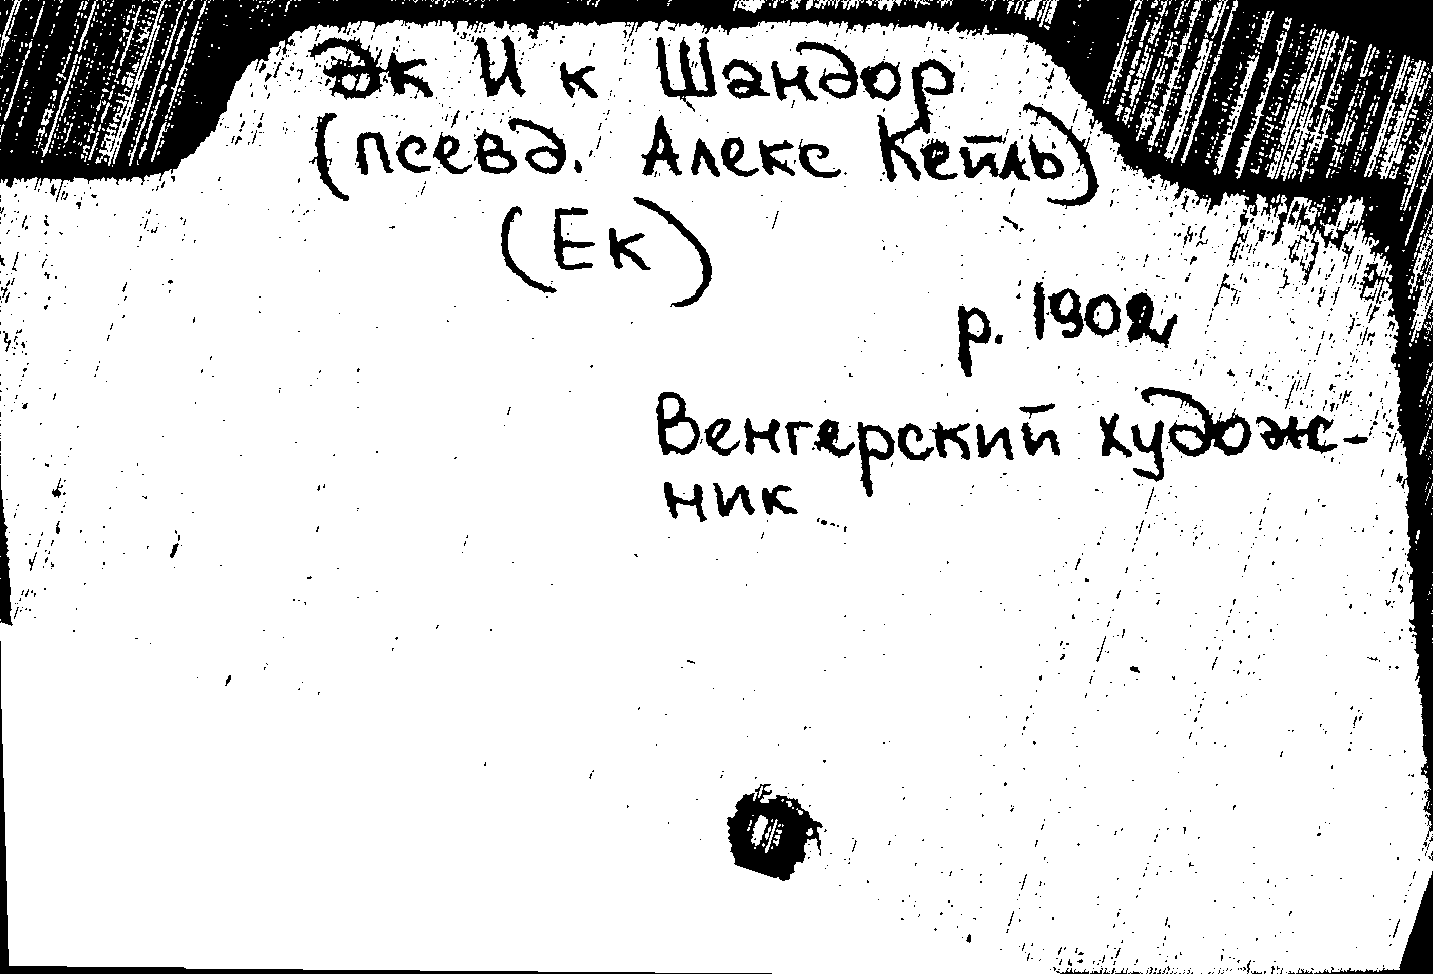 Эк И к Шандор
(псевд. Алекс Кейль)
(Ек)
р. 1902
Венгерский худож-
ник